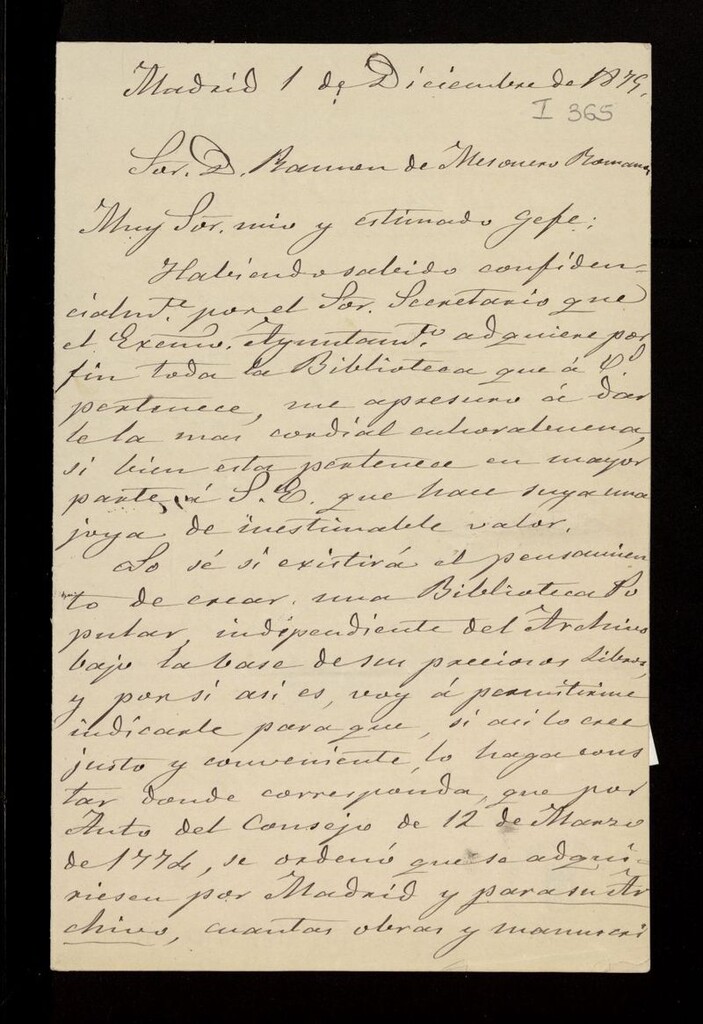 Madrid 1 de Diciembre de 1875.
I 365
Sor. D. Ramon de Mesonero Romanos
Muy Sor. mio y estimado Gefe:
Habiendo sabido confiden-
cialmte. por el Sor. Secretario que
el Excmo. Ayuntamto. adquiere por
fin toda la Biblioteca que á V.
pertenece, me apresuro á dar
le la mas cordial enhorabuena,
si bien esta pertenece en mayor
parte, á S. E. que hace suya una
joya de inestimable valor.
No sé si existirá el pensamien
to de crear una Biblioteca Po
pular, independiente del Archivo
bajo la base de sus preciosos Libros,
y por si asi es, voy á permitirme
indicarle para que, si asi lo cree
justo y conveniente, lo haga cons
tar donde corresponda, que por
Auto del Consejo de 12 de Marzo
de 1774, se ordenó que se adqui-
riesen por Madrid y para su Ar
chivo, cuantas obras y manuscri